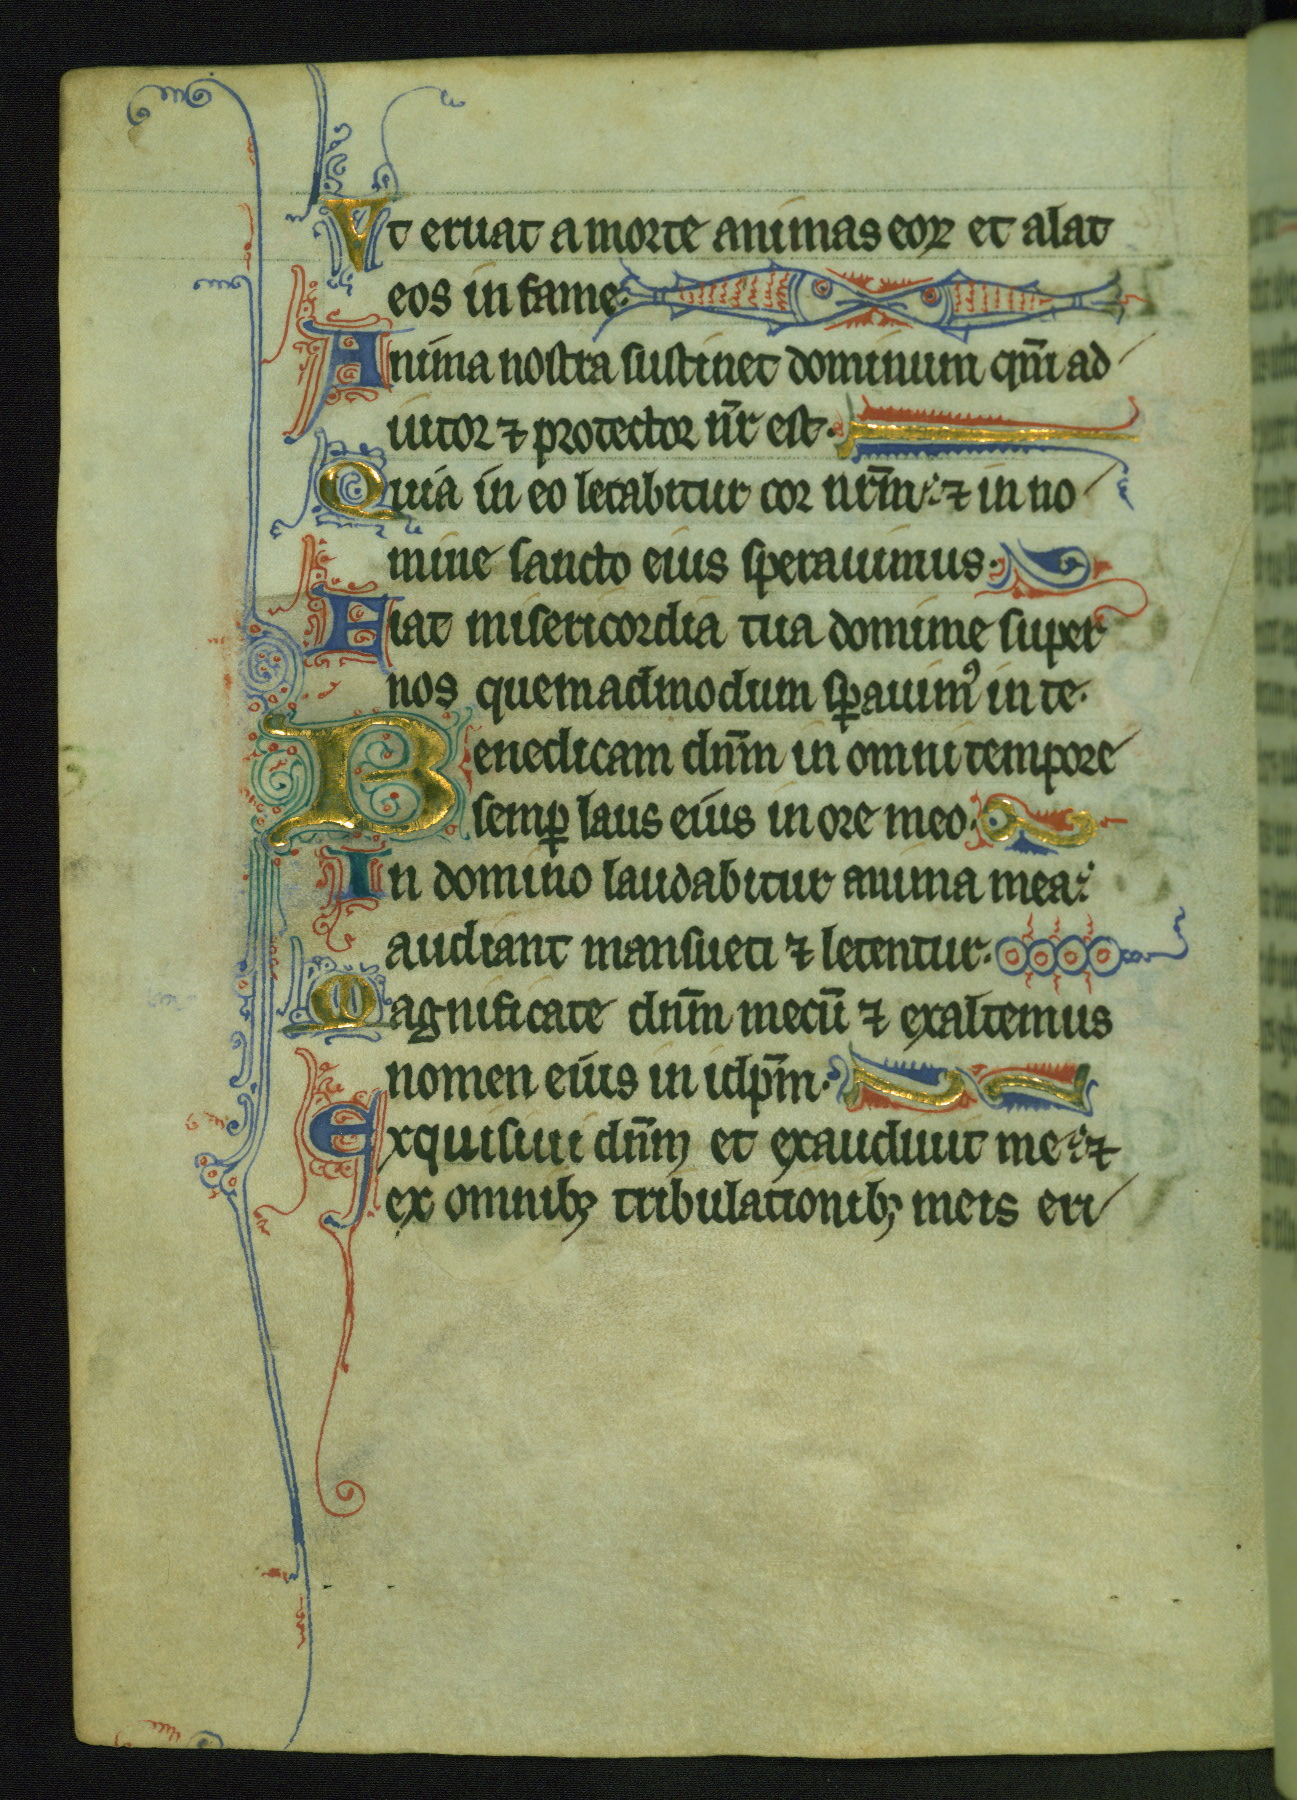 Vt eruat a morte animas eoꝝ et alat
eos in fame.
Anima nostra sustinet dominum qm̄ ad
iutor ⁊ protector nr̄ est.
Quia in eo letabitur cor nrm̄: ⁊ in no
mine sancto eius sperauimus.
Fiat misericordia tua domine super
nos quemadmodum sꝑauimꝰ in te.
Benedicam dnm̄ in omni tempore
semꝑ laus eius in ore meo.
In domino laudabitur anima mea:
audiant mansueti ⁊ letentur.
Magnificate dnm̄ mecū ⁊ exaltemus
nomen eius in idpm̄.
Exquisiui dnm̄ et exaudiuit me: ⁊
ex omnibꝫ tribulationibꝫ meis eri